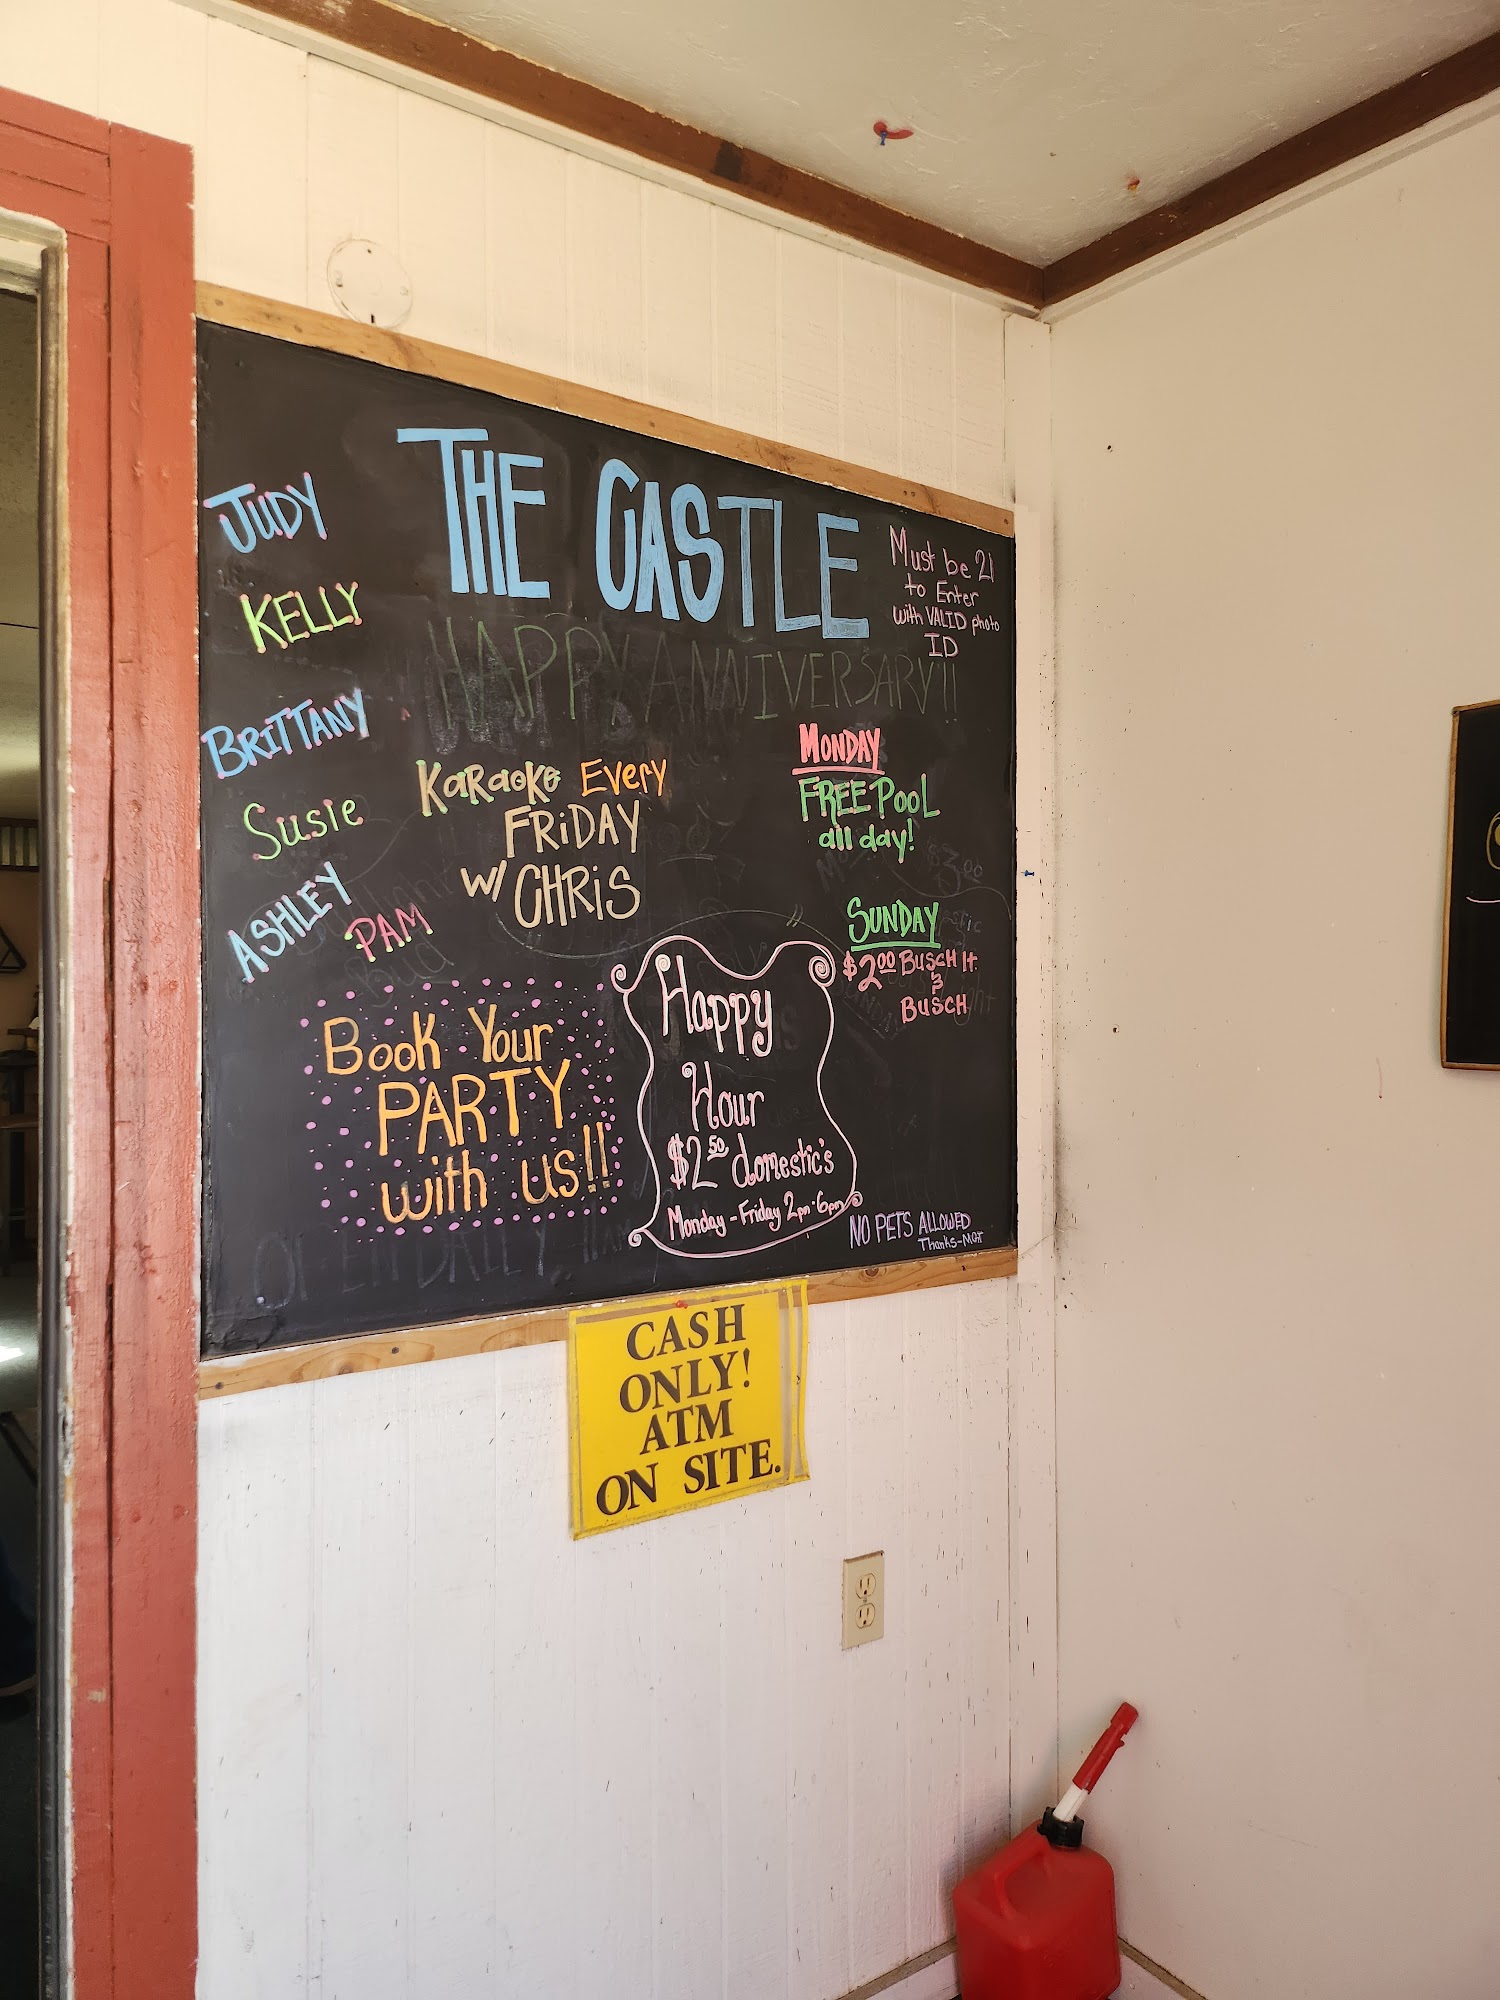 THE CASTLE
JUDY
KELLY
BRITTANY
Susie
ASHLEY
PAM
Must be 21
to Enter
with VALID photo
ID
HAPPY ANNIVERSARY!!
KaRaoKe Every
FRiDAY
w/ CHRiS
MONDAY
FREE PooL
all day!
SUNDAY
$2.00 BUSCH lt
&
BUSCH
Book Your
PARTY
with us!!
Happy
Hour
$2.50 domestic's
Monday - Friday 2pm-6pm
NO PETS ALLOWED
Thanks-MGT
OPEN DAILY
CASH
ONLY!
ATM
ON SITE.